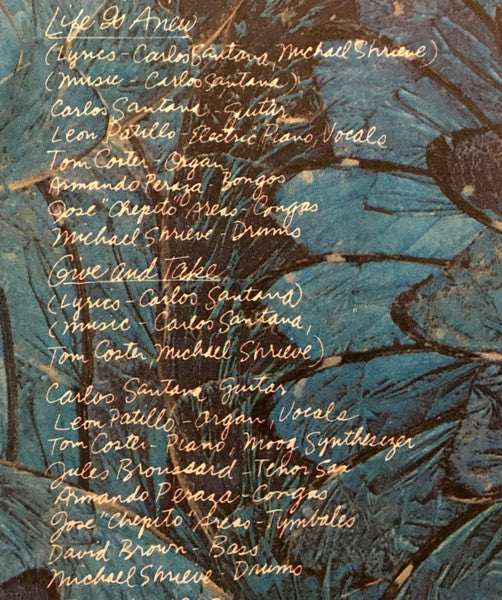 Life Is Anew
(Lyrics - Carlos Santana, Michael Shrieve)
(Music - Carlos Santana)
Carlos Santana - Guitar
Leon Patillo - Electric Piano, Vocals
Tom Coster - Organ
Armando Peraza - Bongos
Jose "Chepito" Areas - Congas
Michael Shrieve - Drums
Give And Take
(Lyrics - Carlos Santana)
(Music - Carlos Santana,
Tom Coster, Michael Shrieve)
Carlos Santana - Guitar
Leon Patillo - Organ, Vocals
Tom Coster - Piano, Moog Synthesizer
Jules Broussard - Tenor Sax
Armando Peraza - Congas
Jose "Chepito" Areas - Tymbales
David Brown - Bass
Michael Shrieve - Drums